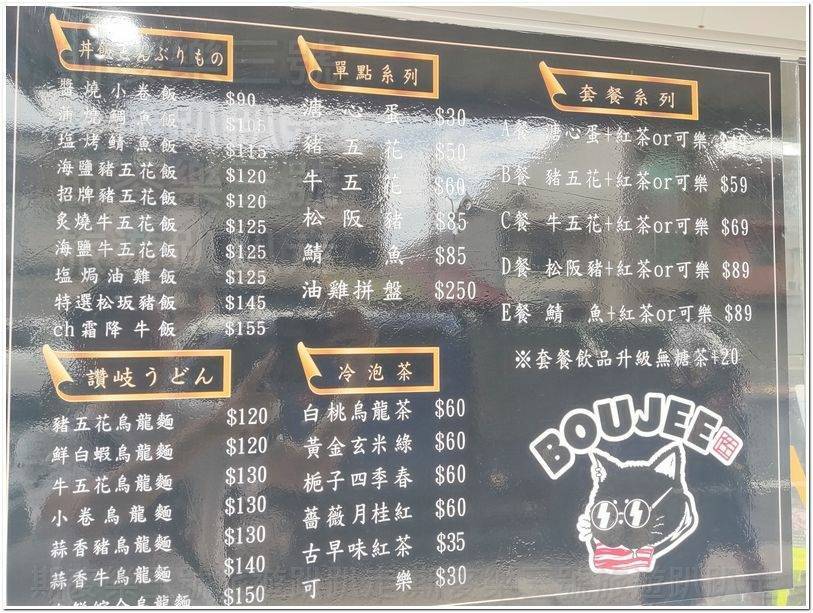 丼飯どんぶりもの
醬燒小卷飯 $90
蒲燒鯛魚飯 $105
塩烤鯖魚飯 $115
海鹽豬五花飯 $120
招牌豬五花飯 $120
炙燒牛五花飯 $125
海鹽牛五花飯 $125
塩焗油雞飯 $125
特選松坂豬飯 $145
ch霜降牛飯 $155
讚岐うどん
豬五花烏龍麵 $120
鮮白蝦烏龍麵 $120
牛五花烏龍麵 $130
小卷烏龍麵 $130
蒜香豬烏龍麵 $130
蒜香牛烏龍麵 $140
$150
單點系列
溏心蛋 $30
豬五花 $50
牛五花 $60
松阪豬 $85
鯖魚 $85
油雞拼盤 $250
冷泡茶
白桃烏龍茶 $60
黃金玄米綠 $60
梔子四季春 $60
薔薇月桂紅 $60
古早味紅茶 $35
可樂 $30
套餐系列
A餐 溏心蛋+紅茶or可樂
B餐 豬五花+紅茶or可樂 $59
C餐 牛五花+紅茶or可樂 $69
D餐 松阪豬+紅茶or可樂 $89
E餐 鯖 魚+紅茶or可樂 $89
※套餐飲品升級無糖茶+20
BOUJEE